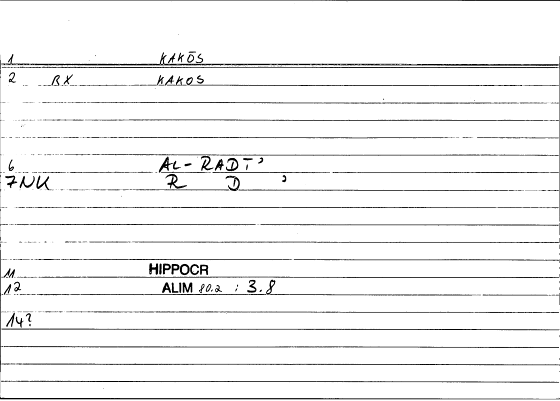 1 KAKŌS
2 BX KAKOS
6 AL-RADĪ'
7NK R D '
11 HIPPOCR
12 ALIM 80.2 : 3.8
14?